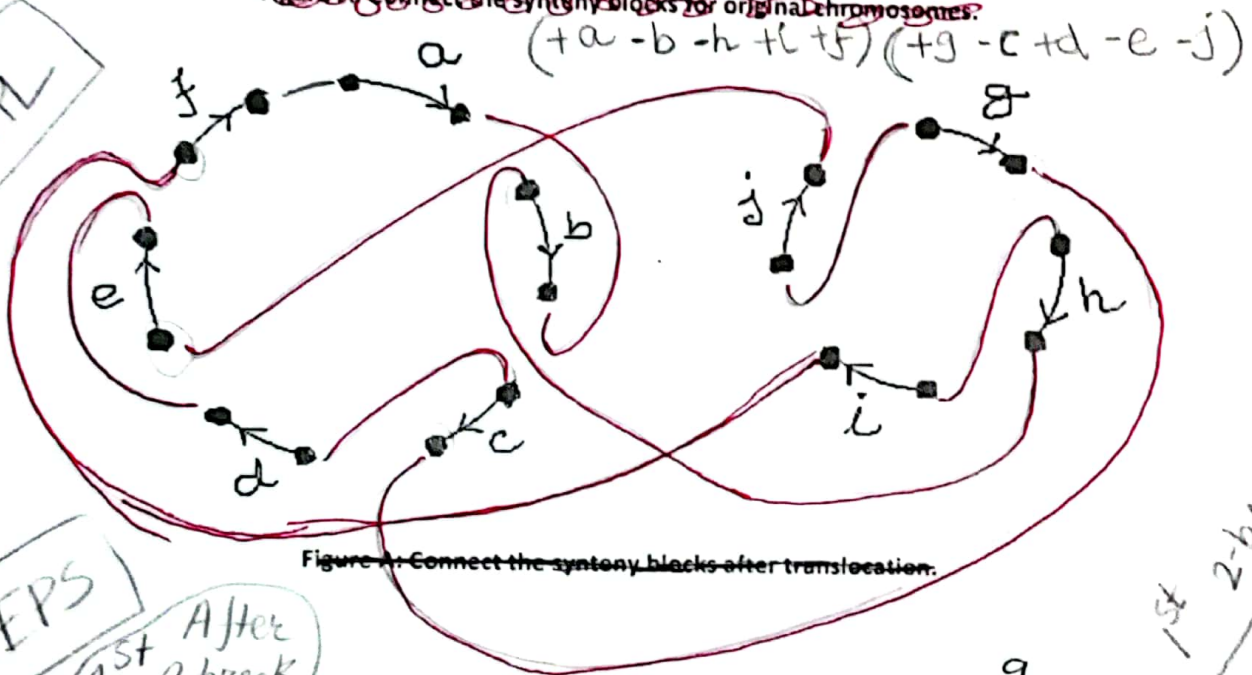 Connect the synteny blocks for original chromosomes.
(+a -b -h +i +f) (+g -c +d -e -j)
f
a
g
j
b
e
h
i
c
d
Figure A: Connect the synteny blocks after translocation.
EPS
1st After
2-break
1st 2-b
a